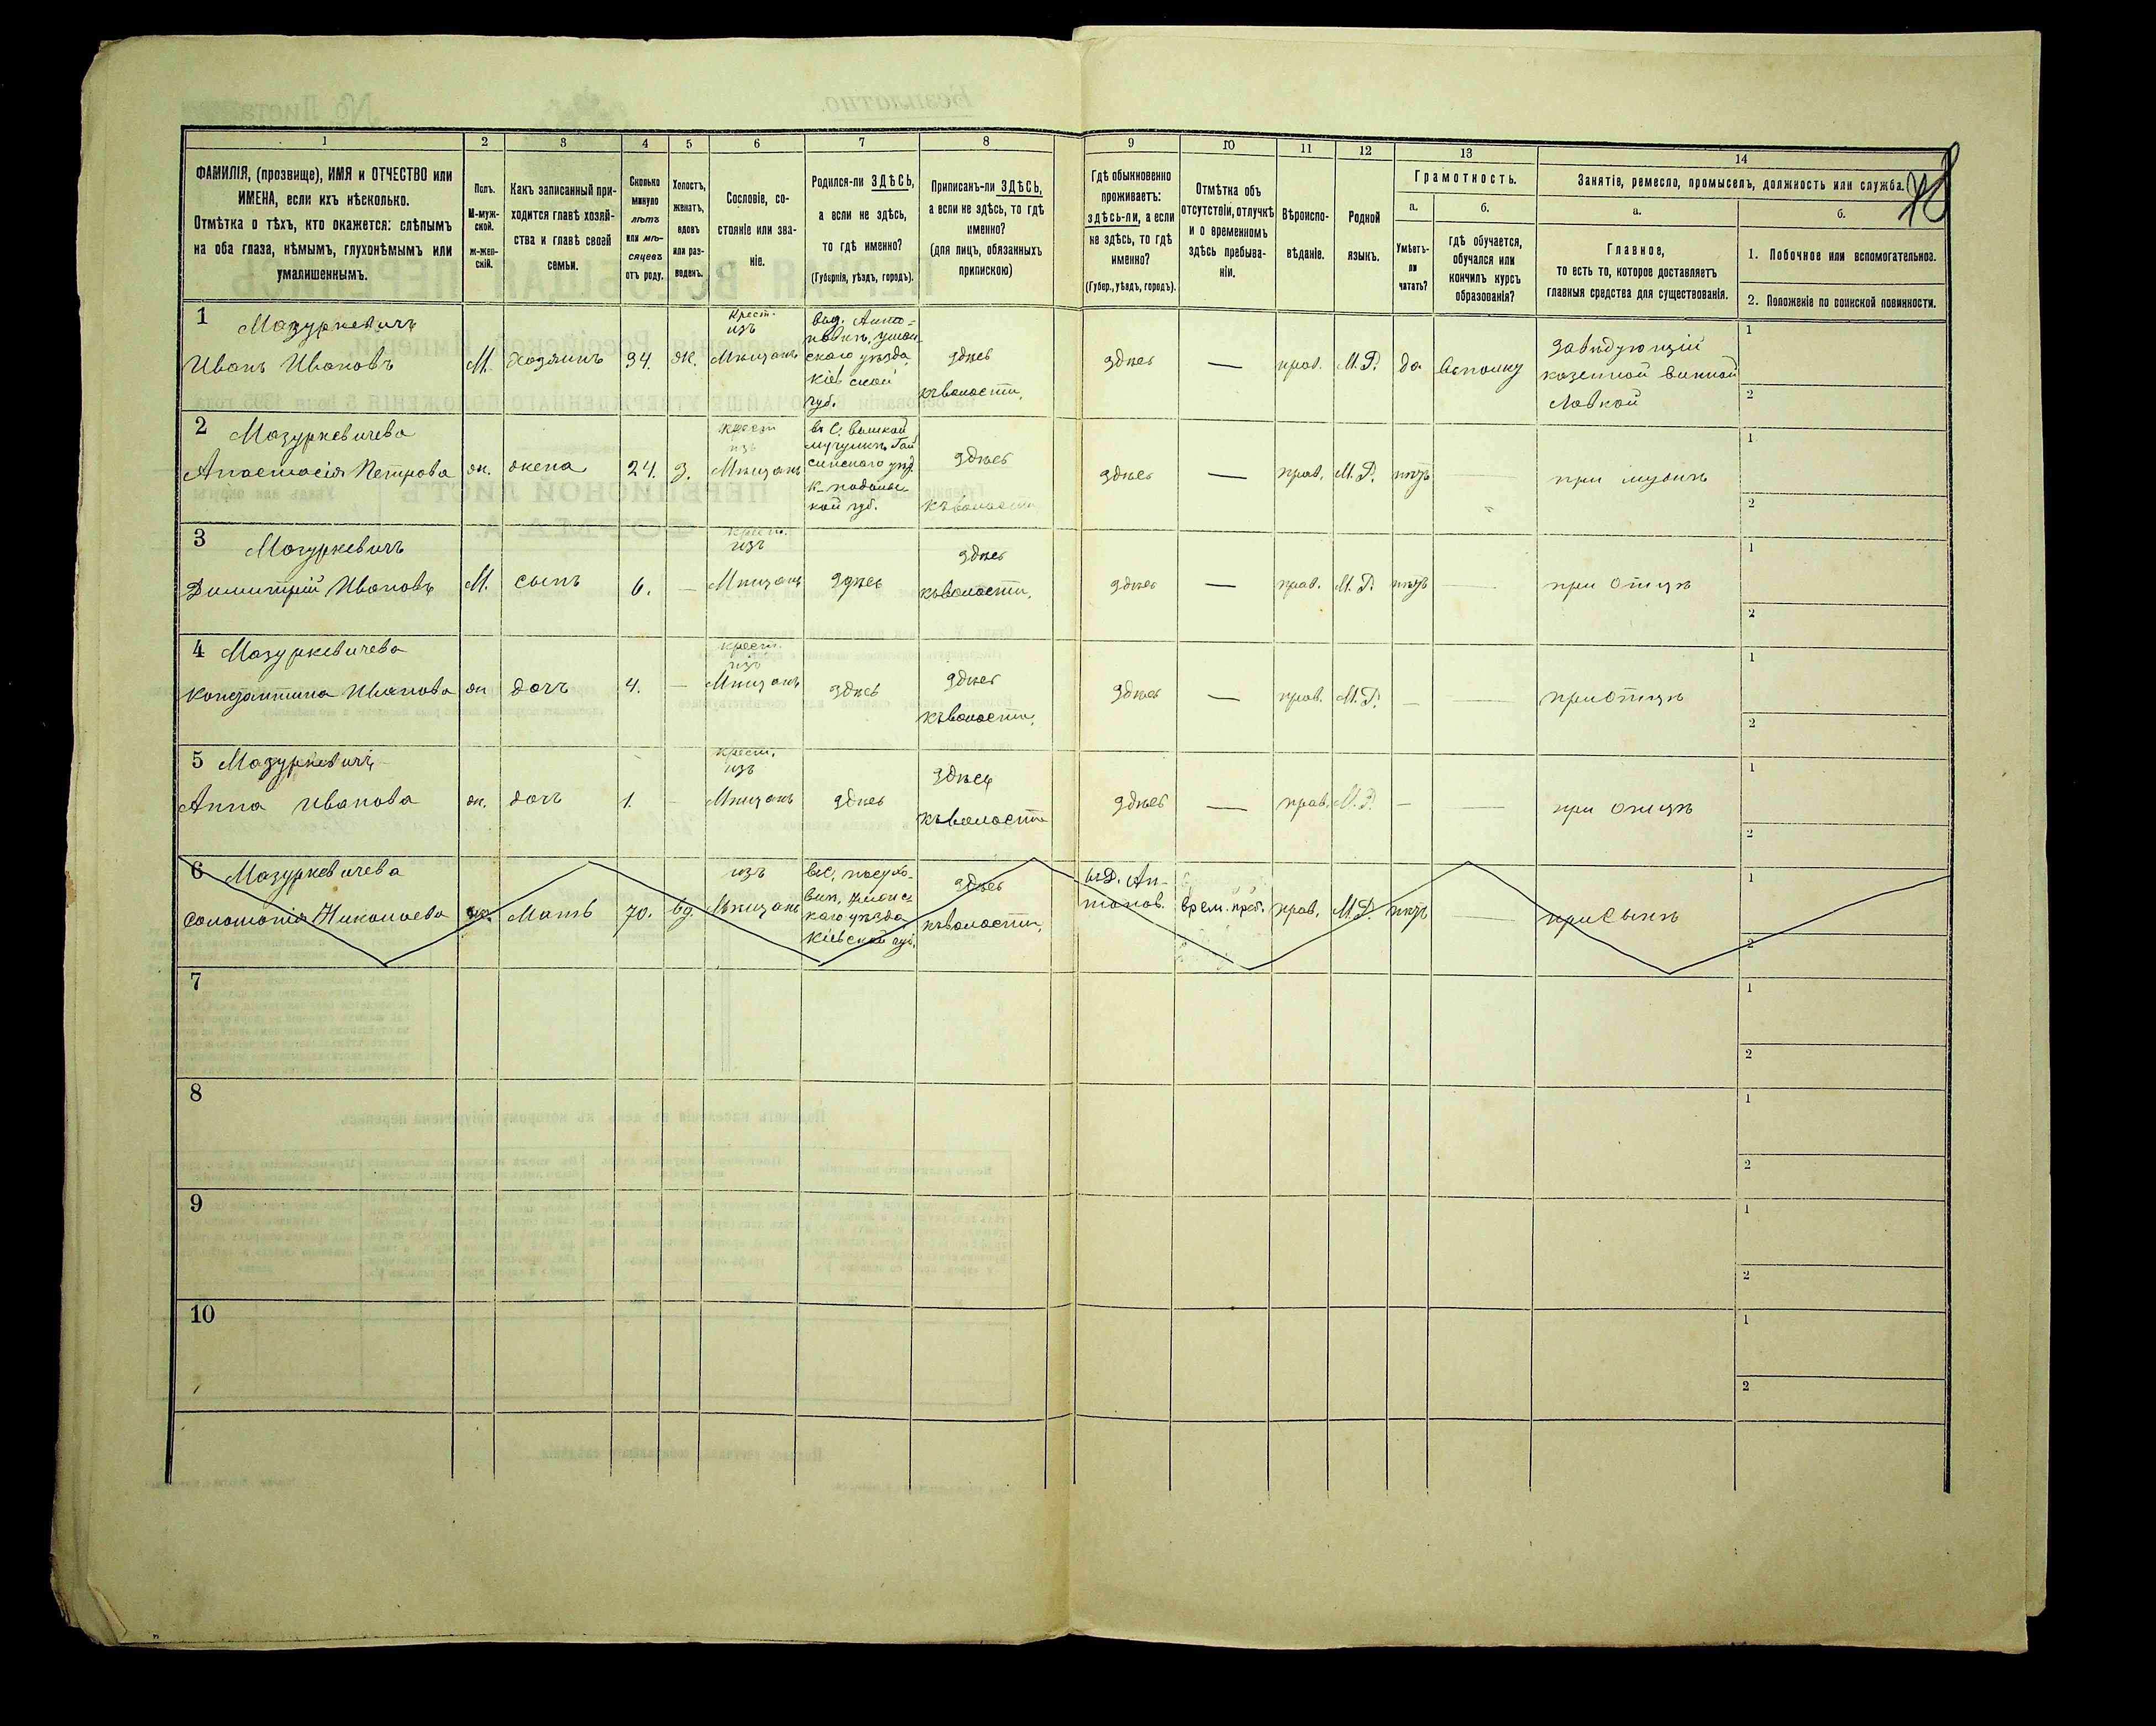 1 2 3 4 5 6 7 8 9 10 11 12 13 14
ФАМИЛІЯ, (прозвище), ИМЯ и ОТЧЕСТВО или
ИМЕНА, если ихъ нѣсколько.
Отмѣтка о тѣхъ, кто окажется: слѣпымъ
на оба глаза, нѣмымъ, глухонѣмымъ или
умалишеннымъ.
Полъ.
М-муж-
ской.
ж-жен-
скій.
Какъ записанный при-
ходится главѣ хозяй-
ства и главѣ своей
семьи.
Сколько
минуло
лѣтъ
или мѣ-
сяцевъ
отъ роду.
Холостъ,
женатъ,
вдовъ
или раз-
веденъ.
Сословіе, со-
стояніе или зва-
ніе.
Родился-ли ЗДѢСЬ,
а если не здѣсь,
то гдѣ именно?
(Губернія, уѣздъ, городъ).
Приписанъ-ли ЗДѢСЬ,
а если не здѣсь, то гдѣ
именно?
(для лицъ, обязанныхъ
припискою)
Гдѣ обыкновенно
проживаетъ:
здѣсь-ли, а если
не здѣсь, то гдѣ
именно?
(Губер., уѣздъ, городъ).
Отмѣтка объ
отсутствіи, отлучкѣ
и о временномъ
здѣсь пребыва-
ніи.
Вѣроиспо-
вѣданіе.
Родной
языкъ.
Грамотность.
а.
Умѣетъ-
ли
читать?
б.
гдѣ обучается,
обучался или
кончилъ курсъ
образованія?
Занятіе, ремесло, промыселъ, должность или служба.
а.
Главное,
то есть то, которое доставляетъ
главныя средства для существованія.
б.
1. Побочное или вспомогательное.
2. Положеніе по воинской повинности.
1 Мазуркевичъ
Иванъ Ивановъ
М.
хозяинъ
34.
Ж.
Крест.
изъ
Мѣщанъ
вьд. Анто-
новкѣ, уман
скаго уѣзда
Кіевской
губ.
здѣсь
къ волости,
здѣсь
—
прав.
М.Р.
да
завѣдующій
казенной винной
лавкой
1
2
2 Мазуркевичева
Анастасія Петрова
ж.
жена
24.
з.
крест
изъ
Мѣщанъ
къ подоль-
кой губ.
здѣсь
къ волости
здѣсь
—
прав.
М.Р.
нѣтъ
при мужѣ
1
2
3 Мазуркевичъ
Димитрій Ивановъ
М.
сынъ
6.
—
крест.
изъ
Мѣщанъ
здѣсь
здѣсь
къ волости,
здѣсь
—
прав.
М.Р.
нѣтъ
при отцѣ
1
2
4 Мазуркевичева
Константина Иванова
ж
дочь
4.
—
крест.
изъ
Мѣщанъ
здѣсь
здѣсь
къ волости,
здѣсь
—
прав.
М.Р.
—
при отцѣ
1
2
5 Мазуркевичъ
Анна Иванова
ж.
дочь
1.
—
крест.
изъ
Мѣщанъ
здѣсь
здѣсь
къ волости
здѣсь
—
прав.
М.Р.
—
при отцѣ
1
2
6 Мазуркевичева
Соломонія Николаева
Мать
70.
вд.
изъ
Мѣщанъ
каго уѣзда
Кіевской губ.
здѣсь
къ волости,
въ д. Ан-
тонов.
врем. преб.
прав.
М.Р
нѣтъ
при сынѣ
1
2
7
1
2
8
1
2
9
1
2
10
1
2